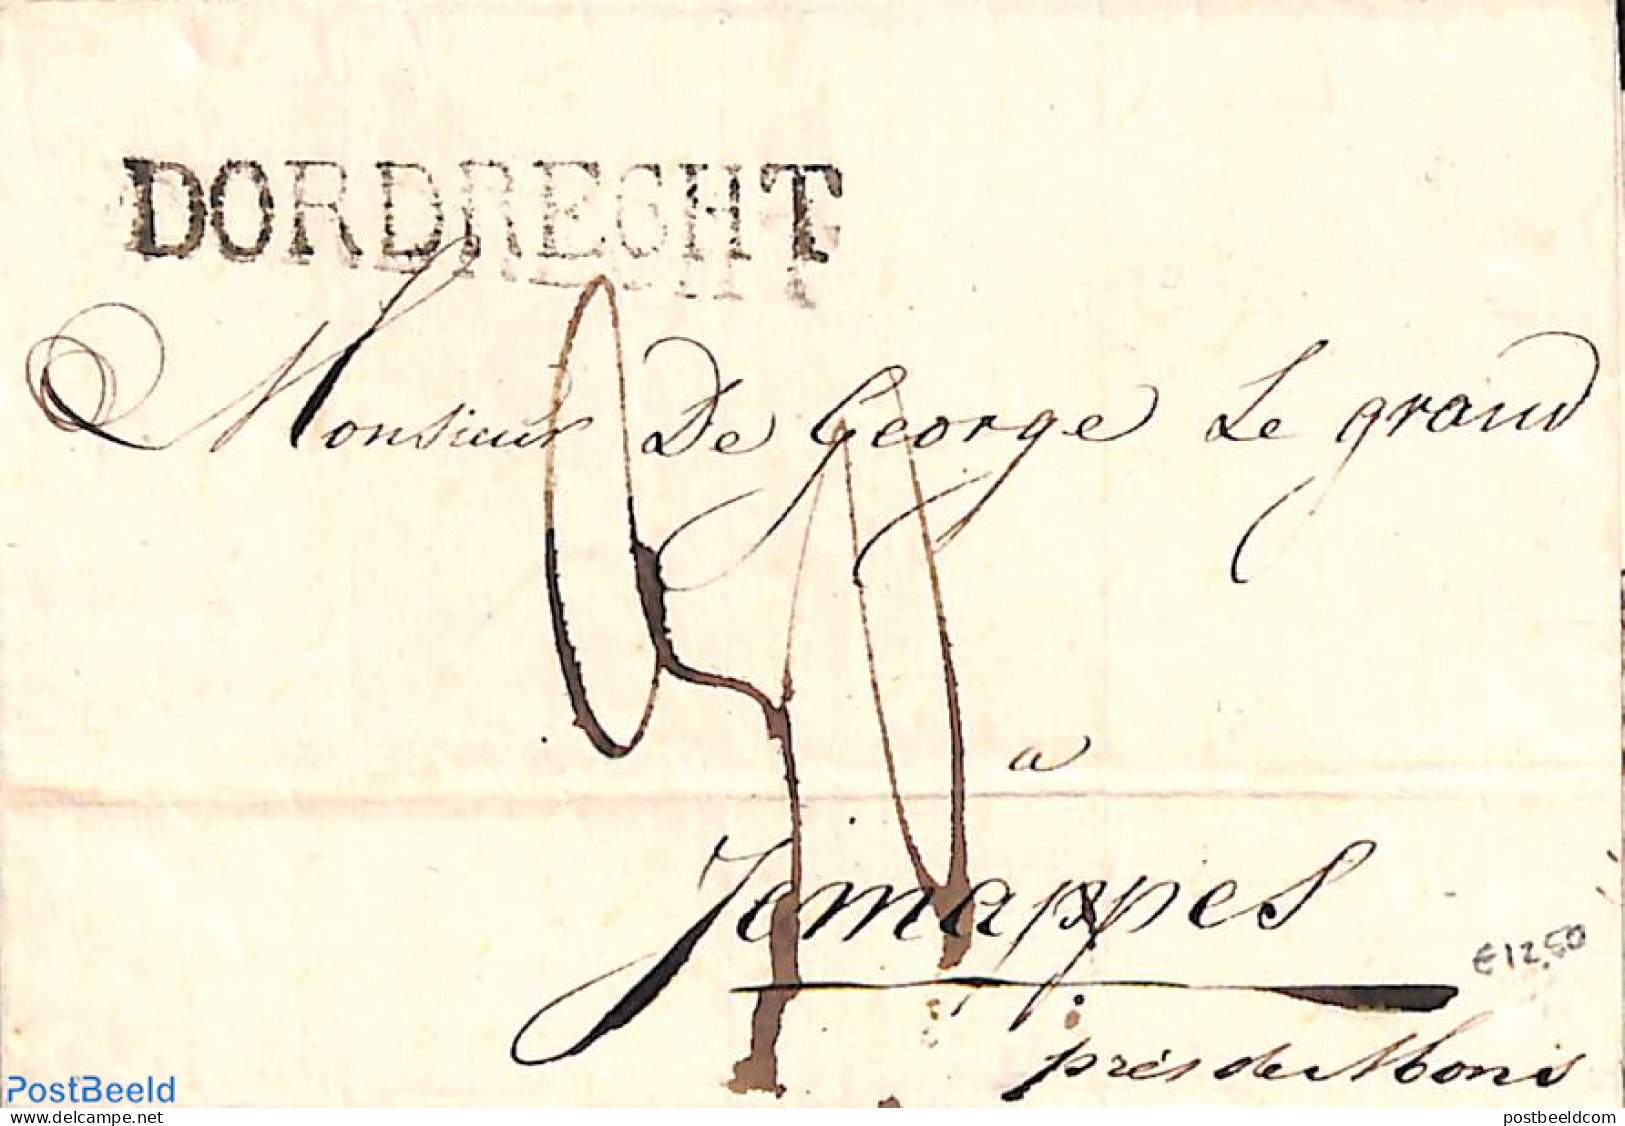 DORDRECHT
Monsieur De George Le grand
a
Jemappes
€12,50
près de Mons
PostBeeld
www.postbeeld.com
postbeeldcom